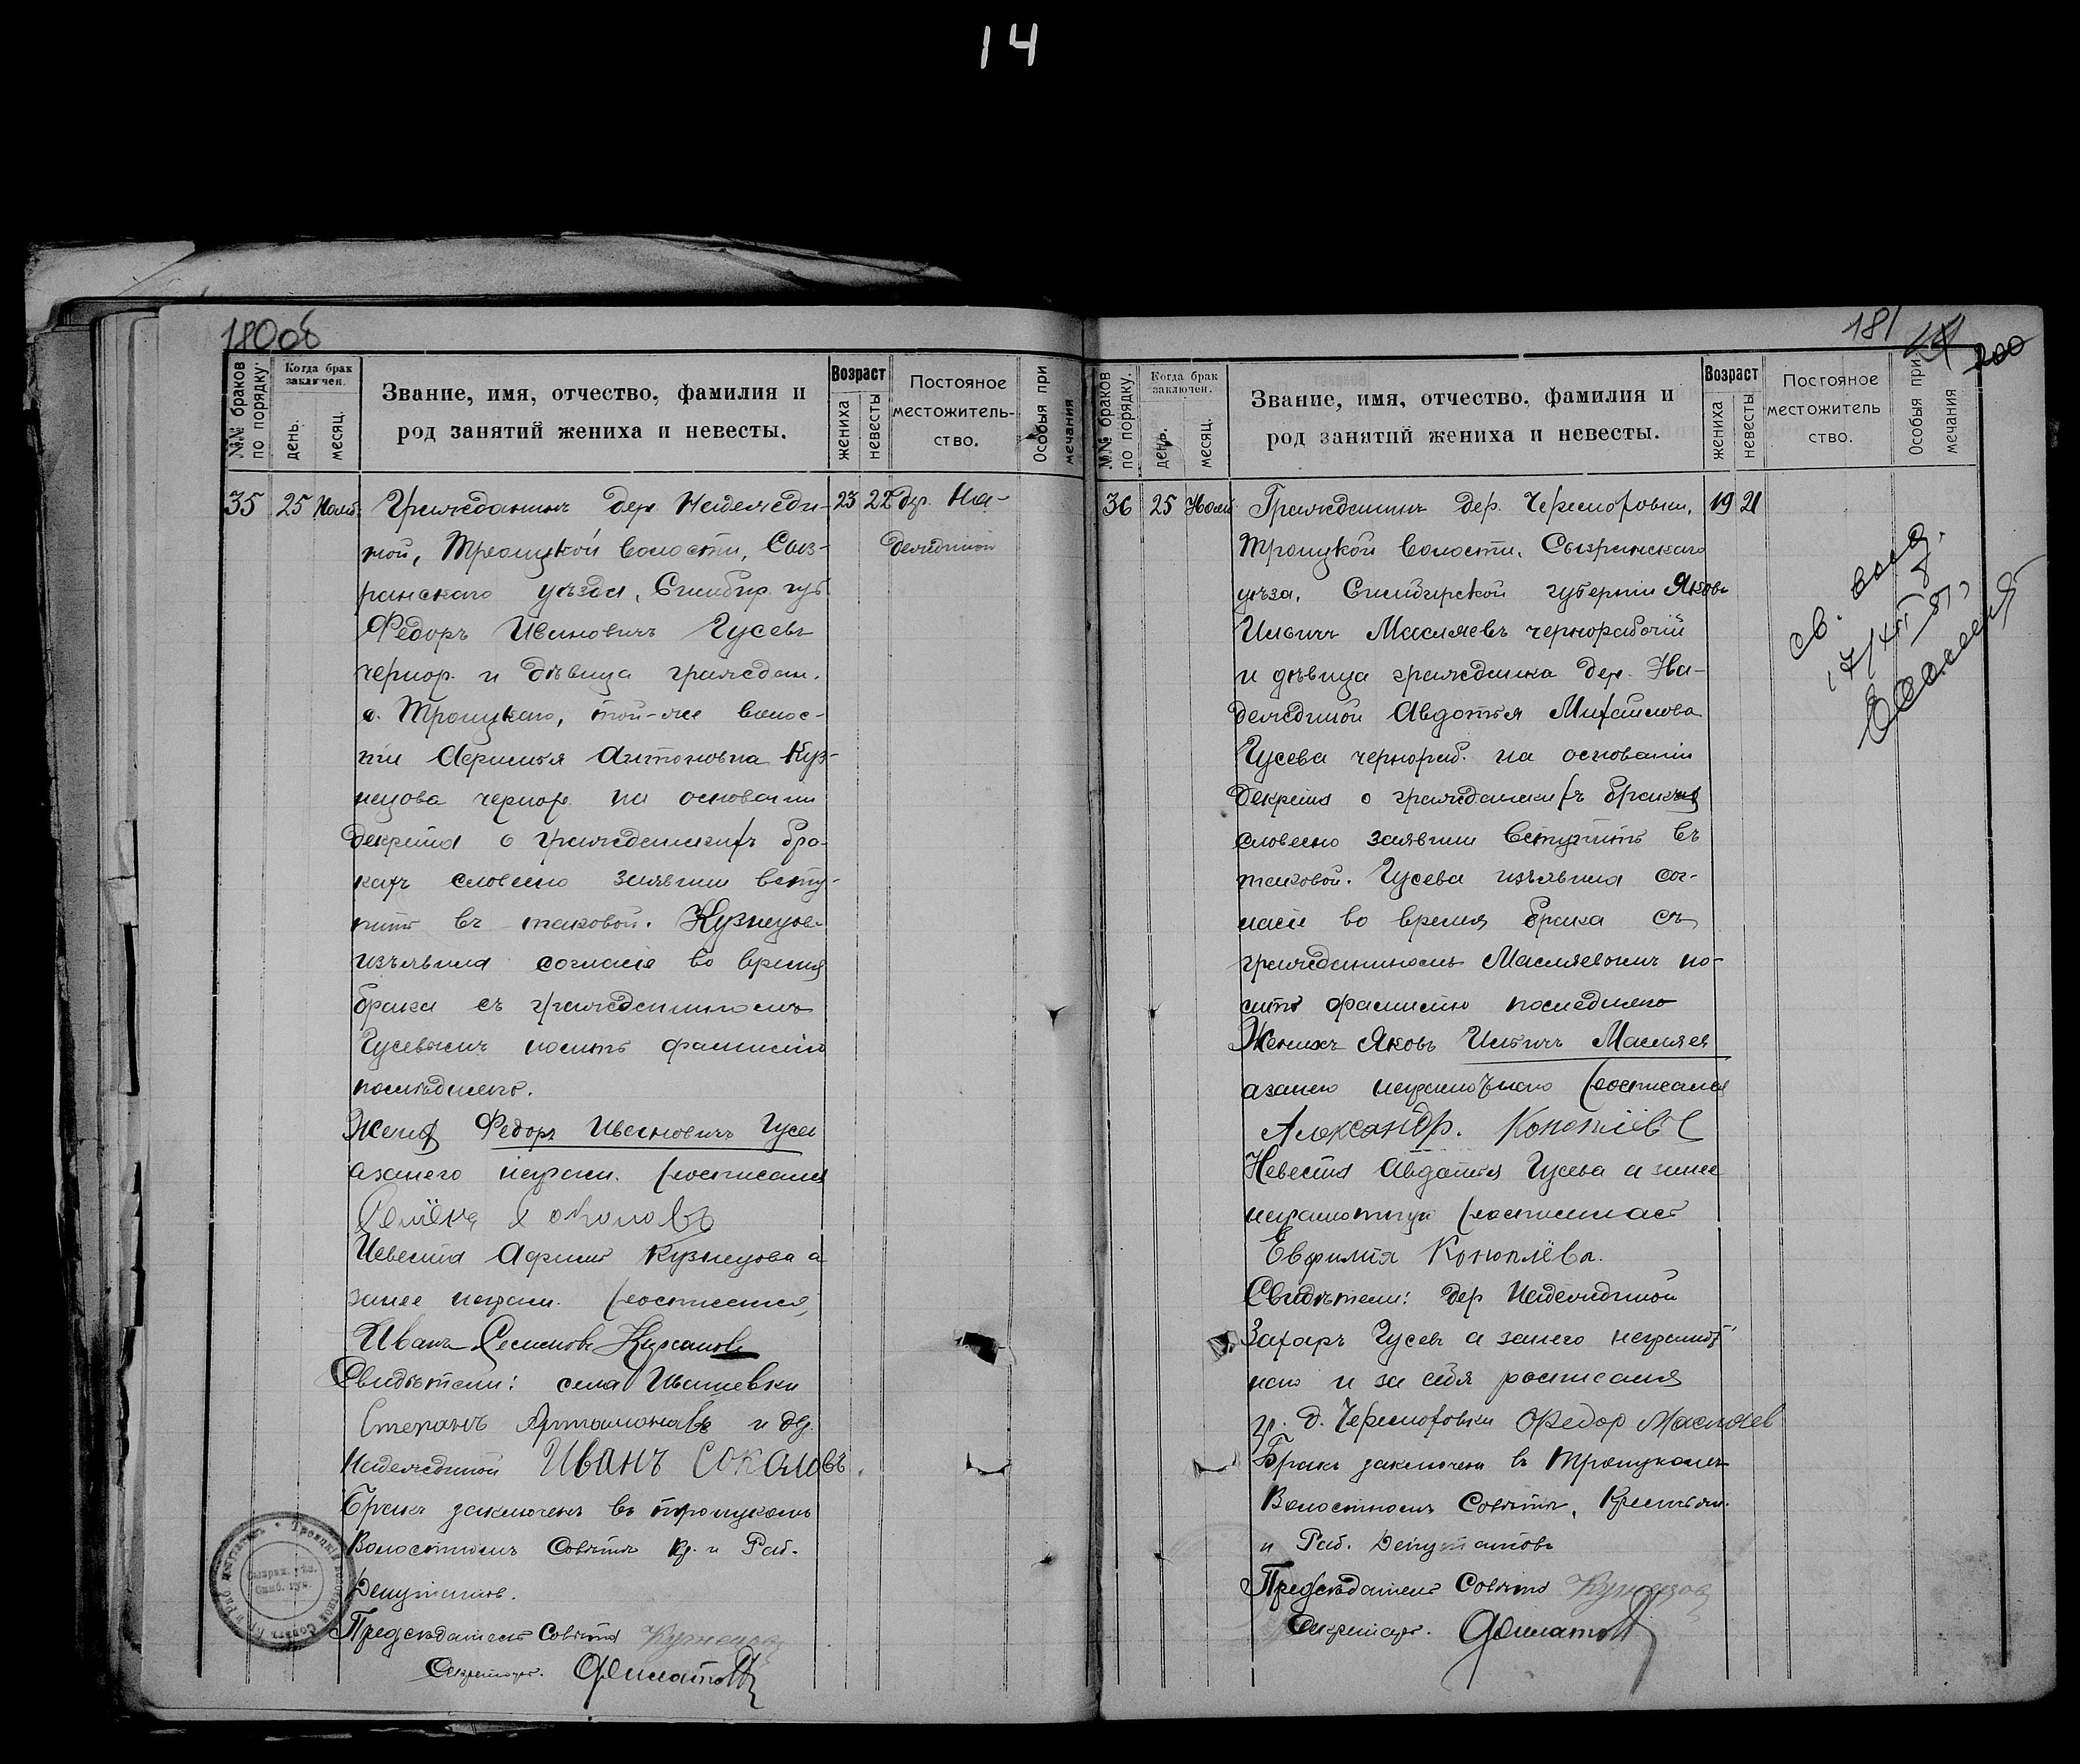 14
180об
№№ браков по порядку.
Когда брак заключен.
день.
месяц.
Звание, имя, отчество, фамилия и
род занятий жениха и невесты.
Возраст
жениха
невесты
Постояное
местожитель-
ство.
Особыя при
мечания
35 25 Нояб. Гражданинъ дер. Надеждин- 23 22 дер. На-
ной, Троицкой волости, Сыз- деждиной
ранскаго уѣзда, Симбир. губ
Федоръ Ивановичъ Гусевъ
чернор. и дѣвица граждан.
с. Троицкаго, той-же волос-
ти Афимья Антоновна Куз-
нецова чернор. на основании
декрета о гражданскихъ бра-
кахъ словесно заявили всту-
пить въ таковой. Кузнецова
изъявила согласіе во время
брака съ гражданиномъ
Гусевымъ носить фамилію
послѣдняго.
Жених Федоръ Ивановичъ Гусев
азанего неграм. росписался
Семёнъ Соколовъ
Невеста Афимья Кузнецова а
занее неграм. росписался
Иванъ Семеновъ
Свидѣтели: села Ивашевки
Степанъ Артамоновъ и дер.
Надеждиной Иванъ Соколовъ.
Бракъ заключенъ въ Троицкомъ
Волостномъ Совѣтѣ Кр. и Раб.
Депутатов.
Председатель Совѣта Кузнецов
Секретарь. Филатов
181
200
№№ браков по порядку.
Когда брак заключен.
день.
месяц.
Звание, имя, отчество, фамилия и
род занятий жениха и невесты.
Возраст
жениха
невесты
Постояное
местожитель
ство.
Особыя при
мечания
36 25 Нояб Гражданинъ дер. Черемоховки, 19 21
Троицкой волости, Сызранскаго
уѣза, Симбирской губернии Яковъ
Ильичъ Масляевъ чернорабочій
и дѣвица гражданка дер. На-
деждиной Авдотья Михайлова
Гусева чернораб. на основаніи
декрета о гражданскихъ браках
словесно заявили вступить въ
таковой. Гусева изъявила сог-
ласіе во время брака съ
гражданиномъ Масляевымъ но-
сить фамилію последнего
Женихъ Яковъ Ильичъ Масляев
азанего неграмотного росписался
Александр. Коноплёвъ
Невеста Авдотья Гусева а занее
неграмотную росписалас
Евфимия Коноплёва.
Свидѣтели: дер Надеждиной
Захаръ Гусевъ а занего неграмот
ного и за себя росписался
гр. д. Черемоховки Федор Масляев
Бракъ заключенъ въ Троицкомъ
Волостномъ Совѣтѣ, Крестьян.
и Раб. Депутатовъ
Председатель Совѣта Кузнецов
Секретарь. Филатов